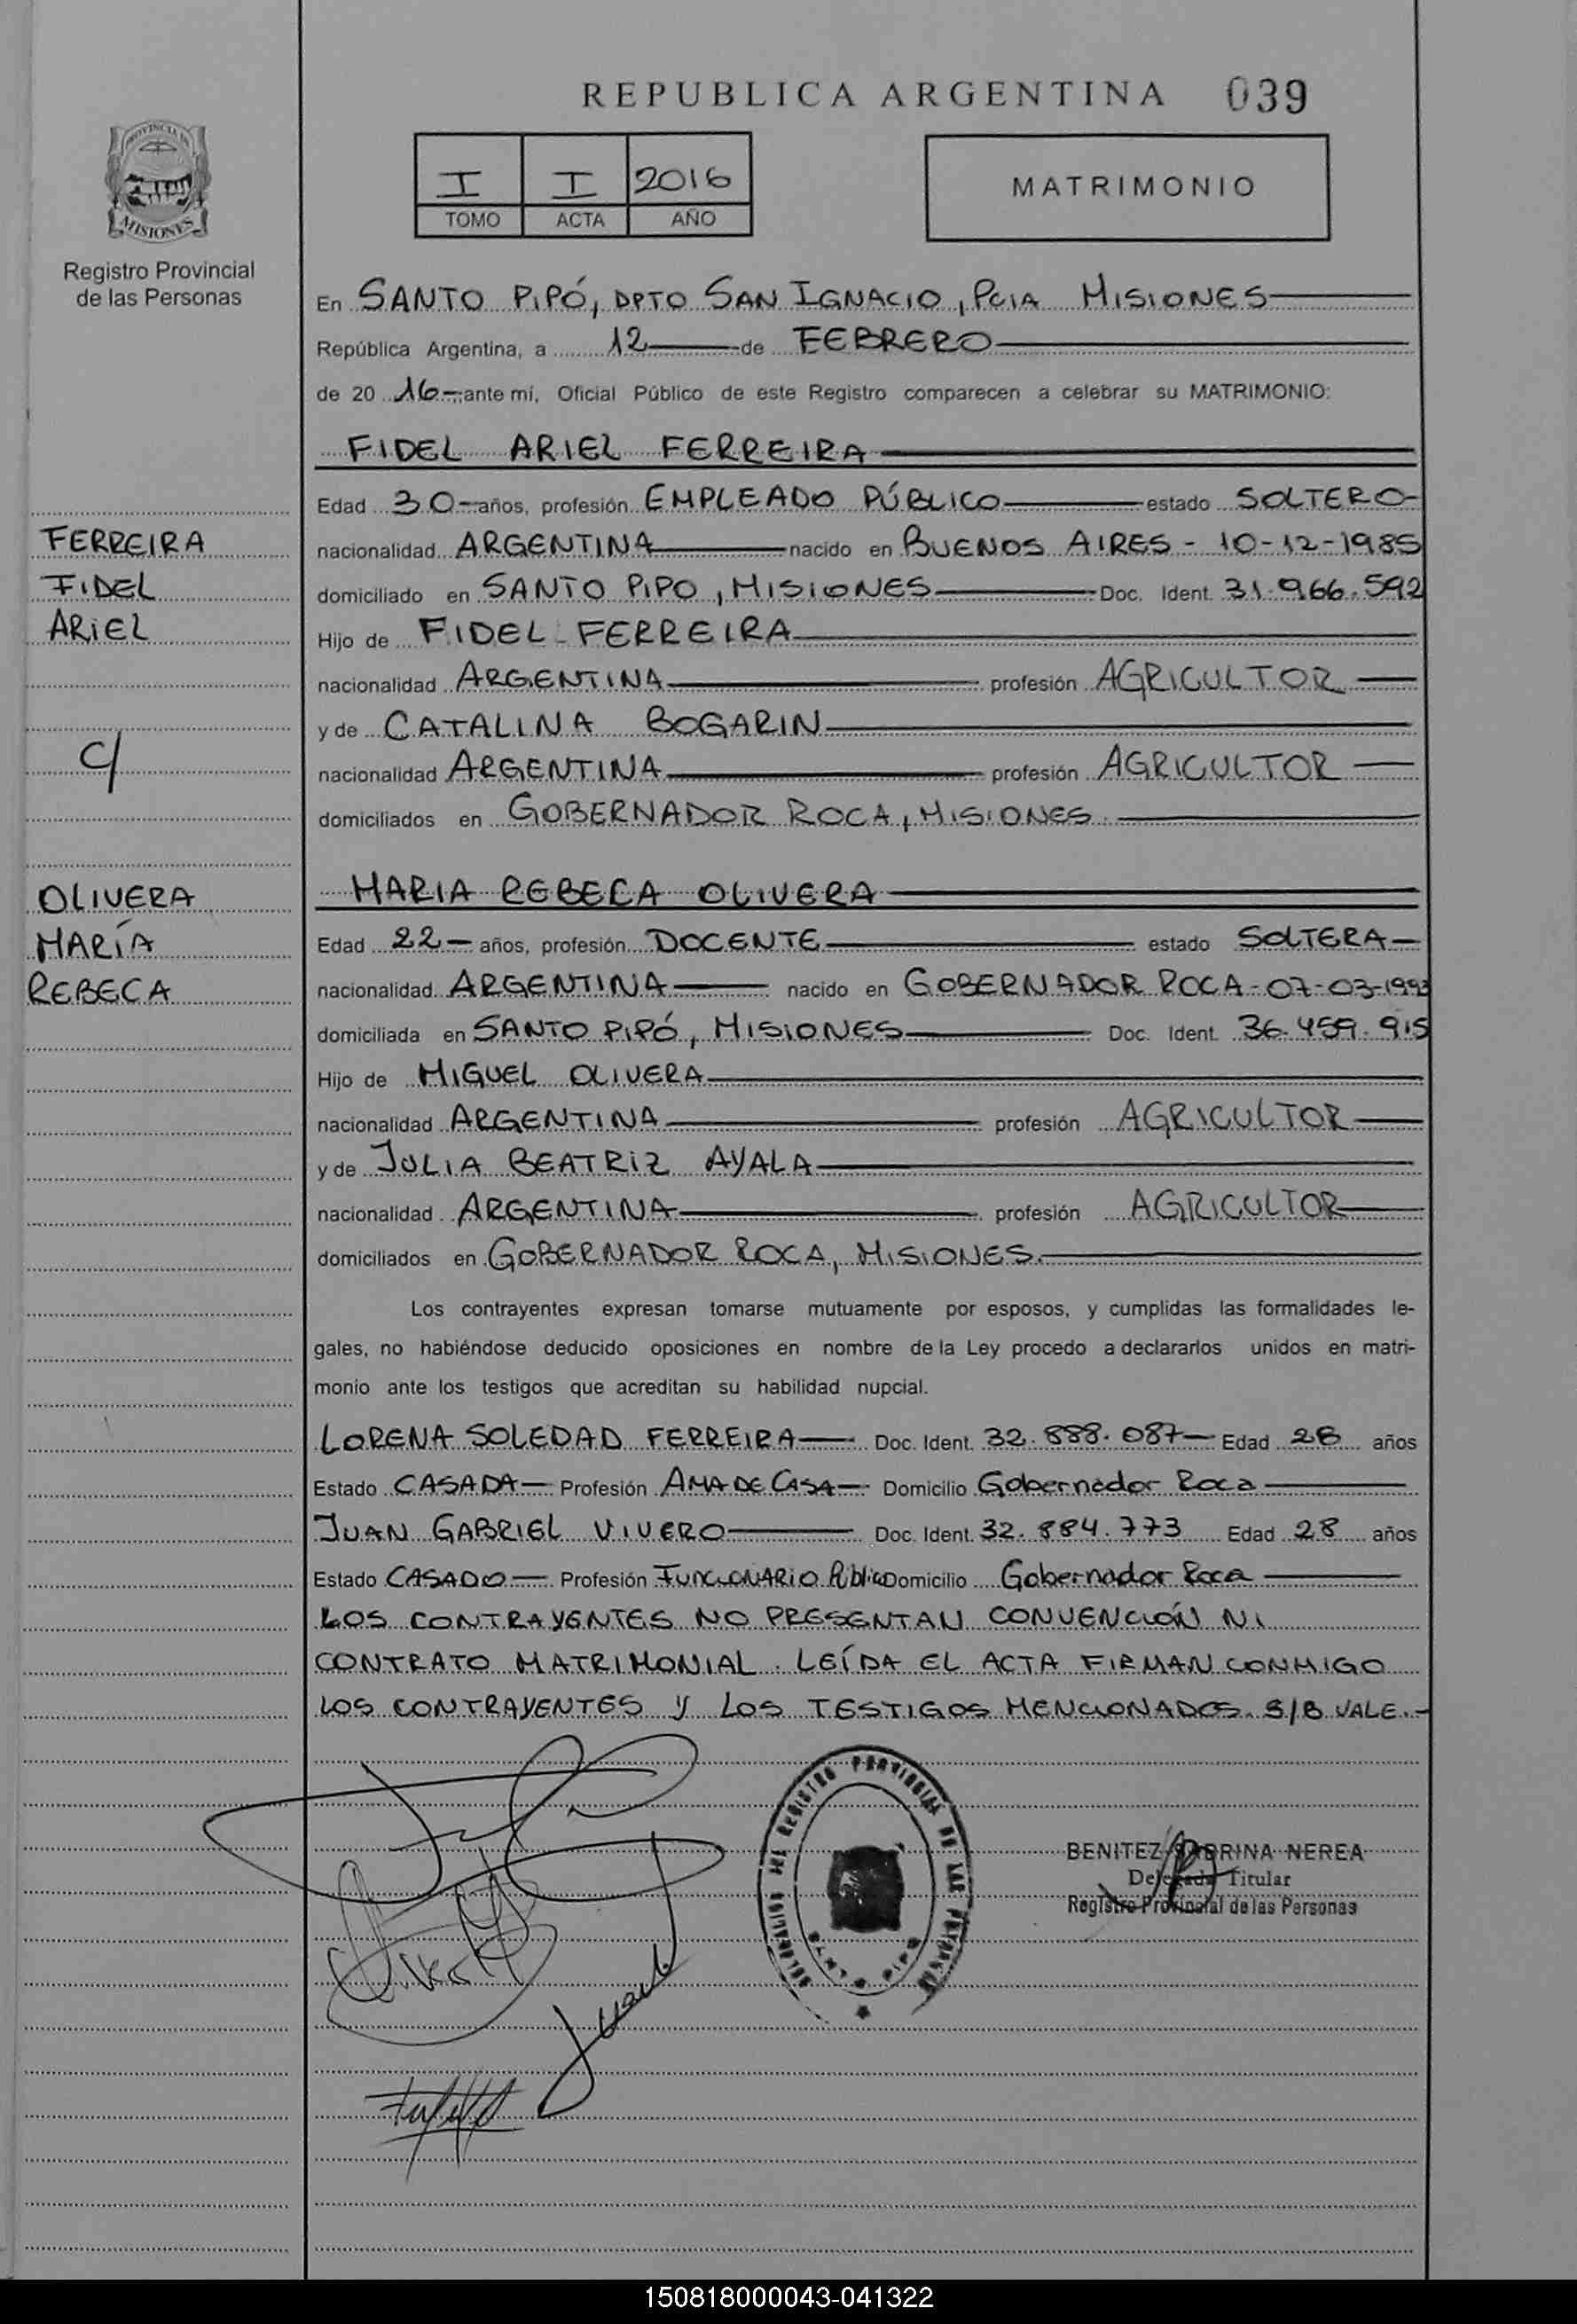 REPUBLICA ARGENTINA 039
I I 2016
TOMO ACTA AÑO
MATRIMONIO
PROVINCIA DE
MISIONES
Registro Provincial
de las Personas
En SANTO PIPÓ, DPTO SAN IGNACIO, PCIA MISIONES
República Argentina, a 12 de FEBRERO
de 20 16 ante mí, Oficial Público de este Registro comparecen a celebrar su MATRIMONIO:
FIDEL ARIEL FERREIRA
Edad 30 años, profesión EMPLEADO PÚBLICO estado SOLTERO
FERREIRA
FIDEL
ARIEL
nacionalidad ARGENTINA nacido en BUENOS AIRES - 10-12-1985
domiciliado en SANTO PIPO, MISIONES Doc. Ident. 31.966.592
Hijo de FIDEL FERREIRA
nacionalidad ARGENTINA profesión AGRICULTOR
y de CATALINA BOGARIN
C/
nacionalidad ARGENTINA profesión AGRICULTOR
domiciliados en GOBERNADOR ROCA, MISIONES.
OLIVERA
MARÍA
REBECA
MARIA REBECA OLIVERA
Edad 22 años, profesión DOCENTE estado SOLTERA
nacionalidad ARGENTINA nacido en GOBERNADOR ROCA - 07-03-1993
domiciliada en SANTO PIPÓ, MISIONES Doc. Ident. 36.459.915
Hijo de MIGUEL OLIVERA
nacionalidad ARGENTINA profesión AGRICULTOR
y de JULIA BEATRIZ AYALA
nacionalidad ARGENTINA profesión AGRICULTOR
domiciliados en GOBERNADOR ROCA, MISIONES.
Los contrayentes expresan tomarse mutuamente por esposos, y cumplidas las formalidades le-
gales, no habiéndose deducido oposiciones en nombre de la Ley procedo a declararlos unidos en matri-
monio ante los testigos que acreditan su habilidad nupcial.
LORENA SOLEDAD FERREIRA Doc. Ident. 32.888.087 Edad 28 años
Estado CASADA Profesión AMA DE CASA Domicilio Gobernador Roca
JUAN GABRIEL VIVERO Doc. Ident. 32.884.773 Edad 28 años
Estado CASADO Profesión FUNCIONARIO Público Domicilio Gobernador Roca
LOS CONTRAYENTES NO PRESENTAN CONVENCIÓN NI
CONTRATO MATRIMONIAL. LEÍDA EL ACTA FIRMAN CONMIGO
LOS CONTRAYENTES Y LOS TESTIGOS MENCIONADOS. S/B VALE.-
REGISTRO PROVINCIAL DE LAS PERSONAS
BENITEZ SABRINA NEREA
Delegada Titular
Registro Provincial de las Personas
150818000043-041322